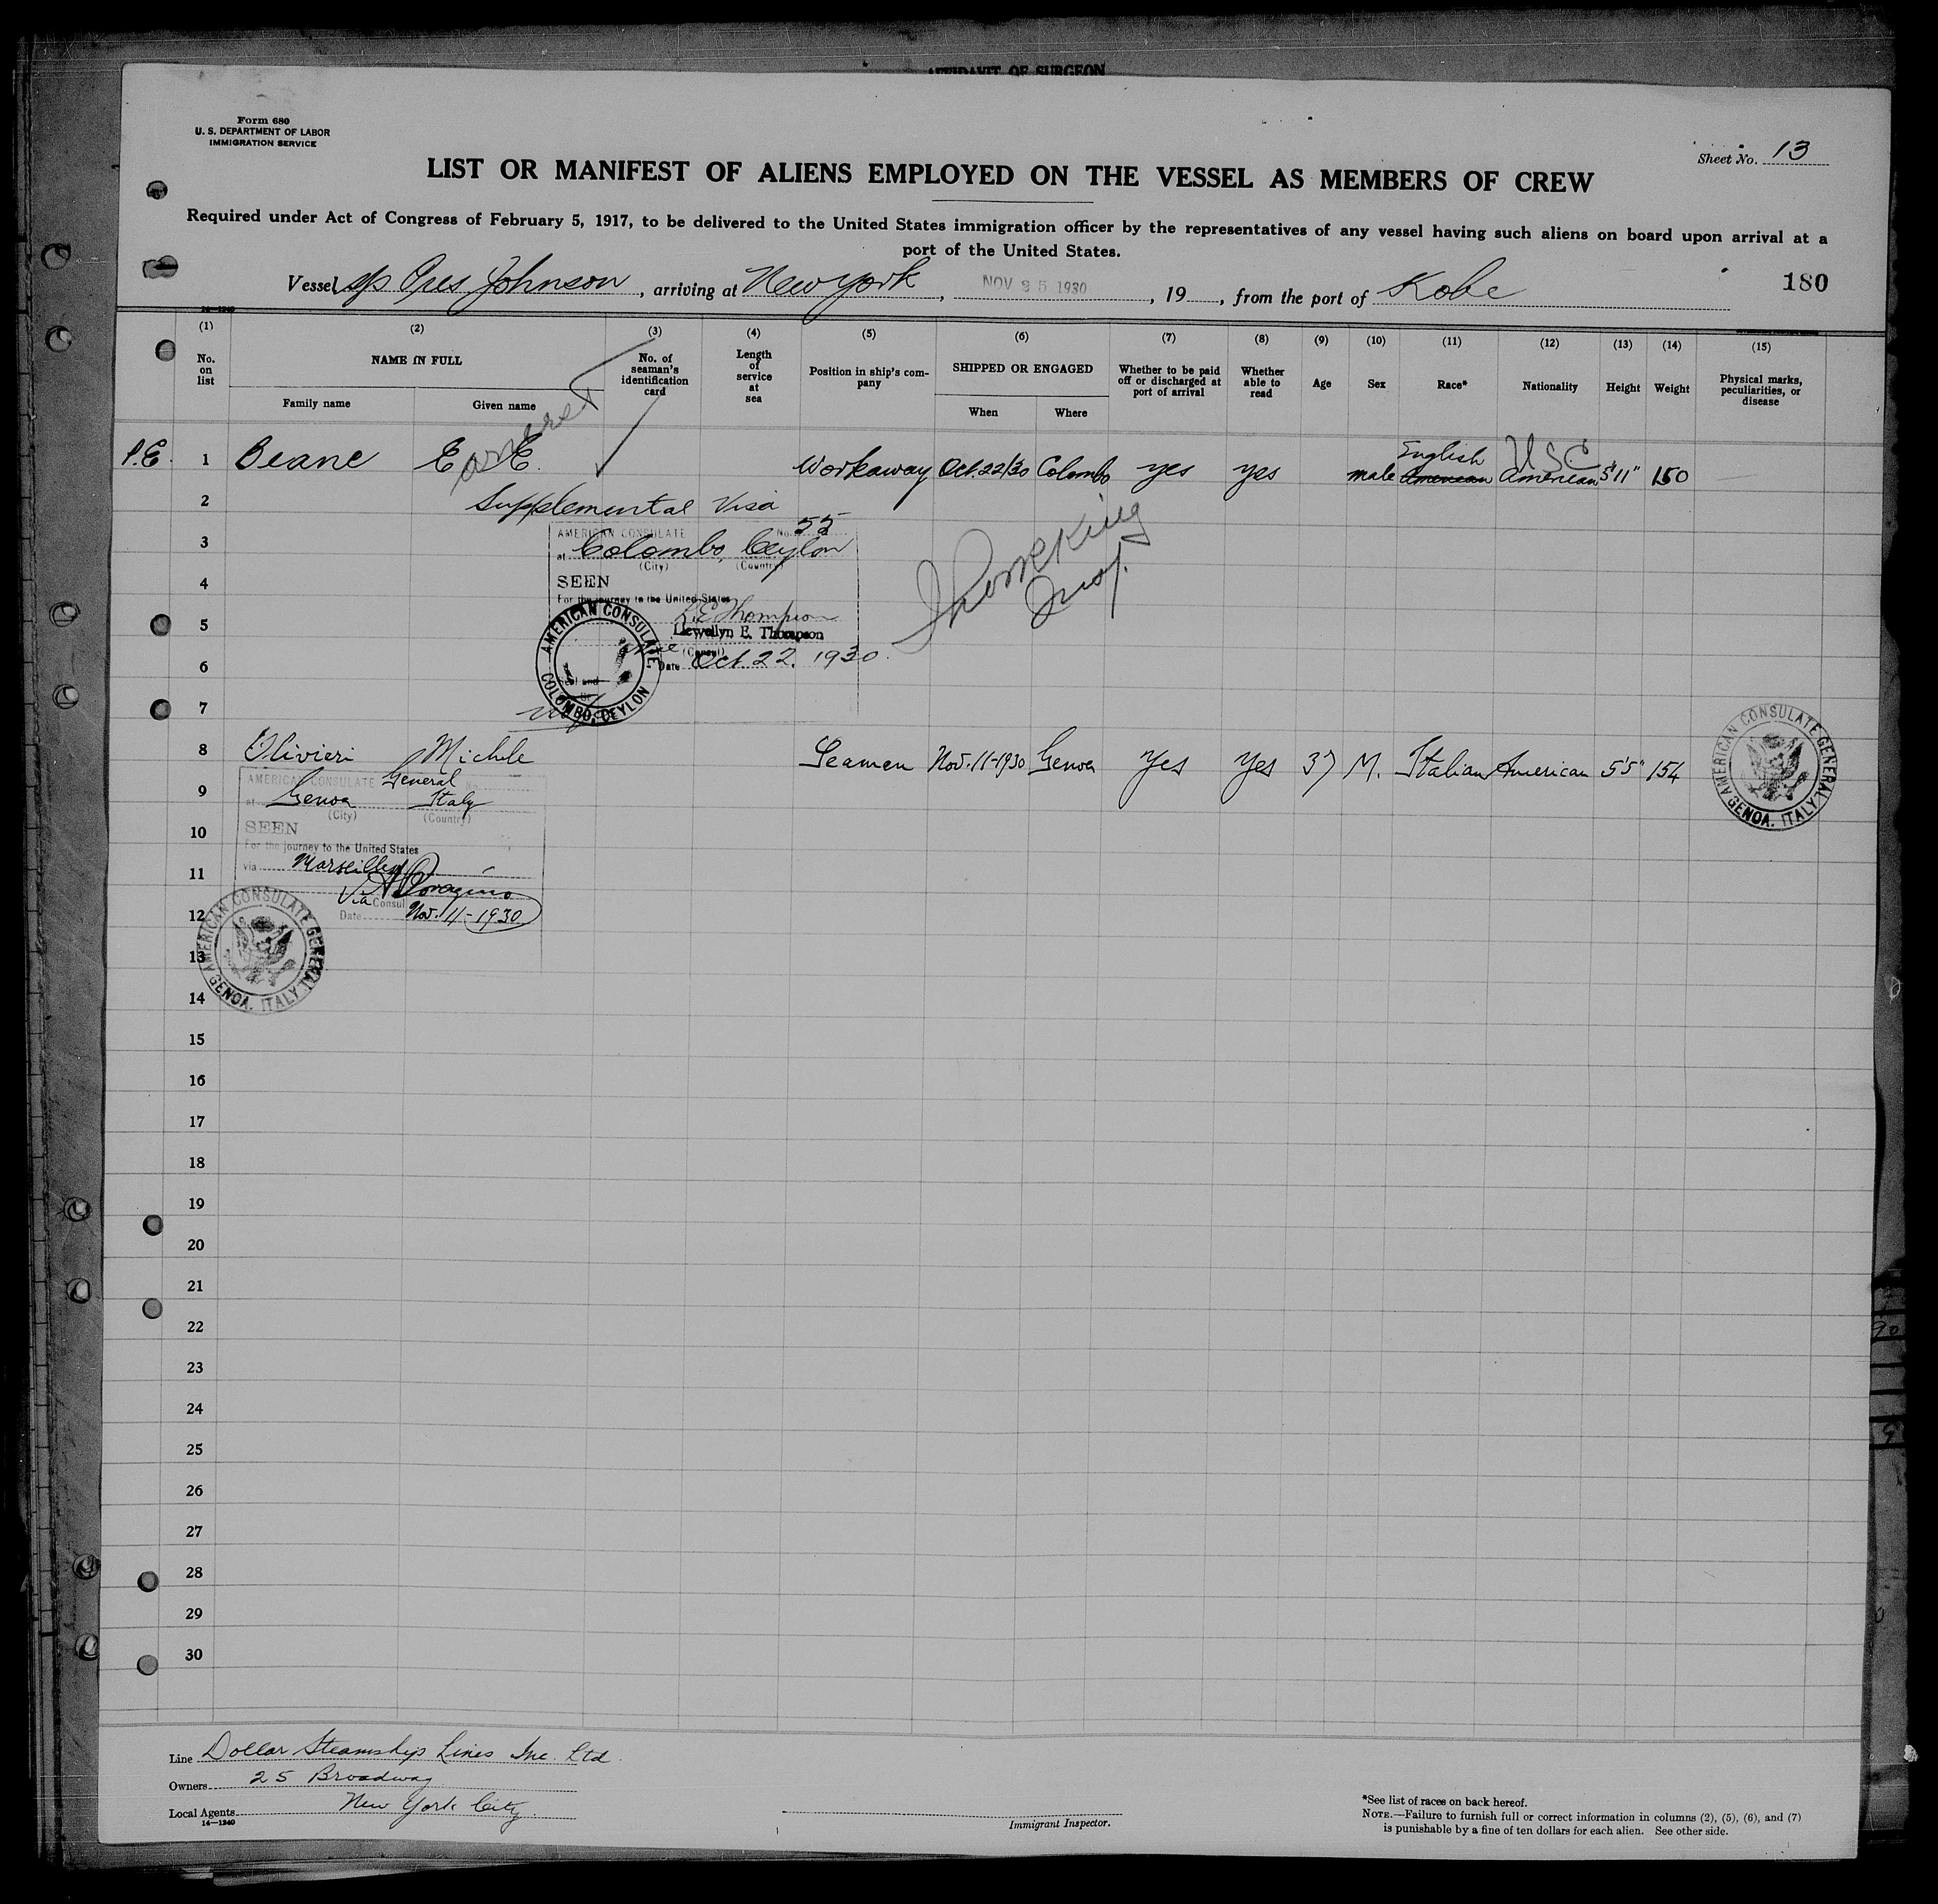 AFFIDAVIT OF SURGEON
Form 680
U. S. DEPARTMENT OF LABOR
IMMIGRATION SERVICE
Sheet No. 13
LIST OR MANIFEST OF ALIENS EMPLOYED ON THE VESSEL AS MEMBERS OF CREW
Required under Act of Congress of February 5, 1917, to be delivered to the United States immigration officer by the representatives of any vessel having such aliens on board upon arrival at a
port of the United States.
Vessel Pres Johnson, arriving at New York, NOV 25 1930, 19, from the port of Kobe
180
(1) (2) (3) (4) (5) (6) (7) (8) (9) (10) (11) (12) (13) (14) (15)
No. on list
NAME IN FULL
Family name Given name
No. of seaman's identification card
Length of service at sea
Position in ship's company
SHIPPED OR ENGAGED
When Where
Whether to be paid off or discharged at port of arrival
Whether able to read
Age
Sex
Race*
Nationality
Height
Weight
Physical marks, peculiarities, or disease
P.E. 1 Beane E. E. Workaway Oct. 22/30 Colombo yes yes male English American USC American 5'11" 150
2 Supplemental Visa
AMERICAN CONSULATE No. 55
3 at Colombo, Ceylon
(City) (Country)
4 SEEN
For the journey to the United States
L E Thompson
5 Llewellyn E. Thompson
(Consul)
6 Date Oct. 22. 1930.
AMERICAN CONSULATE COLOMBO, CEYLON
7
8 Olivieri Michele Seaman Nov. 11-1930 Genoa Yes Yes 37 M. Italian American 5'5" 154
AMERICAN CONSULATE General
9 at Genoa Italy
(City) (Country)
10 SEEN
For the journey to the United States
11 via Marseilles
Consul
12 Date Nov. 11-1930
AMERICAN CONSULATE GENERAL GENOA, ITALY
AMERICAN CONSULATE GENERAL GENOA, ITALY
13
14
15
16
17
18
19
20
21
22
23
24
25
26
27
28
29
30
Line Dollar Steamship Lines Inc. Ltd.
Owners 25 Broadway
Local Agents New York City.
14—1240
Immigrant Inspector.
*See list of races on back hereof.
NOTE.—Failure to furnish full or correct information in columns (2), (5), (6), and (7)
is punishable by a fine of ten dollars for each alien. See other side.